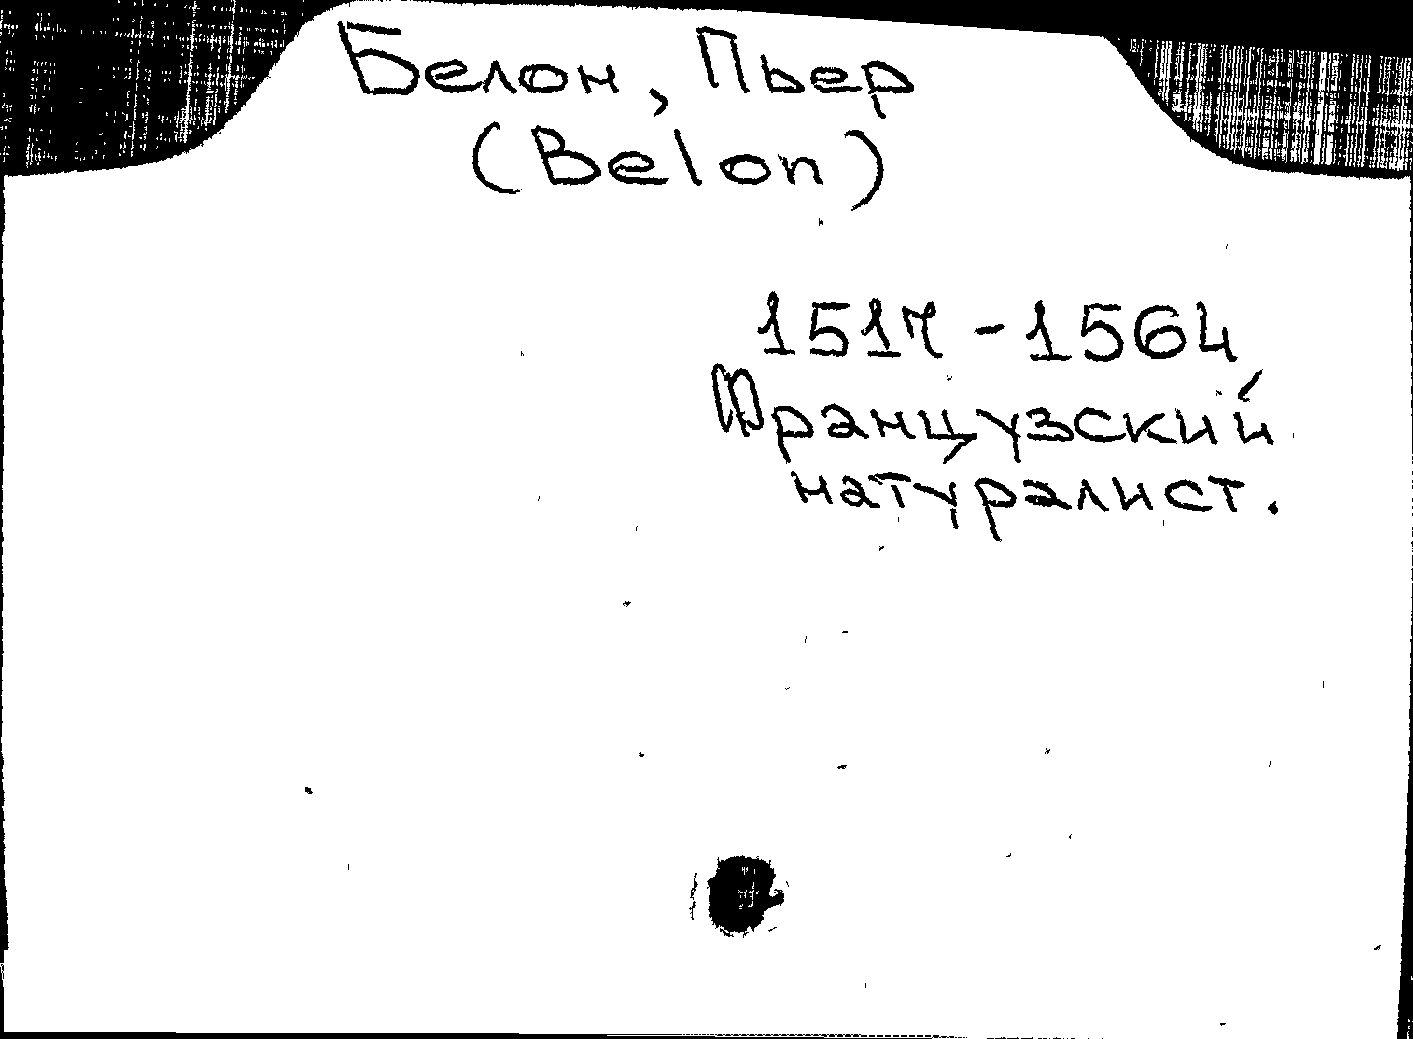 Белон, Пьер
(Belon)
1517-1564
Французский
натуралист.